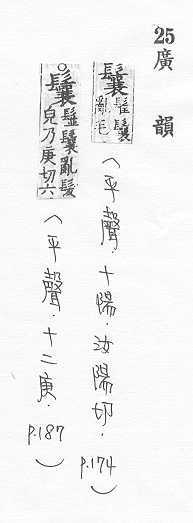 25廣韻
鬤髶鬤亂毛（平聲．十陽．汝陽切．p.174）
○鬤鬇鬤亂髮皃乃庚切六（平聲．十二庚．p.187）